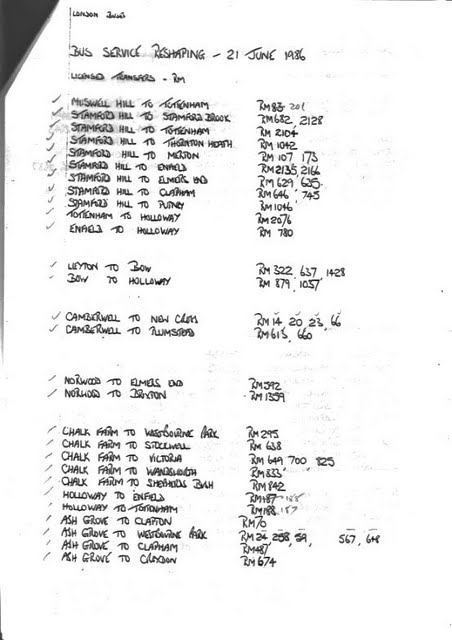 LONDON BUSES
BUS SERVICE RESHAPING - 21 JUNE 1986
LICENSED TRANSFERS - RM
✓ MUSWELL HILL TO TOTTENHAM RM 83. 201
✓ STAMFORD HILL TO STAMFORD BROOK RM 682, 2128
✓ STAMFORD HILL TO TOTTENHAM RM 2104
✓ STAMFORD HILL TO THORNTON HEATH RM 1042
✓ STAMFORD HILL TO MERTON RM 107, 173
✓ STAMFORD HILL TO ENFIELD RM 2135, 2166
✓ STAMFORD HILL TO ELMERS END RM 629, 635
✓ STAMFORD HILL TO CLAPHAM RM 646, 745
✓ STAMFORD HILL TO PUTNEY RM 1046
✓ TOTTENHAM TO HOLLOWAY RM 2076
✓ ENFIELD TO HOLLOWAY RM 780
✓ LEYTON TO BOW RM 322, 637, 1428
✓ BOW TO HOLLOWAY RM 879, 1037
✓ CAMBERWELL TO NEW CROSS RM 14, 20, 23, 66
✓ CAMBERWELL TO PLUMSTEAD RM 613, 660
✓ NORWOOD TO ELMERS END RM 592
✓ NORWOOD TO BRIXTON RM 1359
✓ CHALK FARM TO WESTBOURNE PARK RM 295
✓ CHALK FARM TO STOCKWELL RM 638
✓ CHALK FARM TO VICTORIA RM 649, 700, 825
✓ CHALK FARM TO WANDSWORTH RM 833
✓ CHALK FARM TO SHEPHERDS BUSH RM 842
✓ HOLLOWAY TO ENFIELD RM 187 188
✓ HOLLOWAY TO TOTTENHAM RM 188 187
✓ ASH GROVE TO CLAPTON RM 70
✓ ASH GROVE TO WESTBOURNE PARK RM 24, 258, 59, 567, 648
✓ ASH GROVE TO CLAPHAM RM 487
✓ ASH GROVE TO CROYDON RM 674